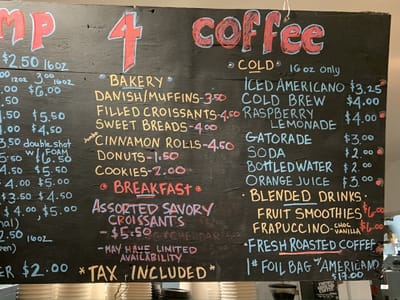 MP 4 coffee
$2.50 16oz
12oz 3.00 16oz
$6.00
.50
$5.00
4.00
4.50
3.50 double shot
w/ FOAM
5.50 $6.50
.50 $5.00
4.00 $5.00
$3.50 $4.50
$4.00 $5.00
2.50 16oz
ER $2.00
BAKERY
DANISH/MUFFINS-3.50
FILLED CROISSANTS-4.50
SWEET BREADS-4.00
CINNAMON ROLLS-4.50
DONUTS-1.50
COOKIES-2.00
BREAKFAST
ASSORTED SAVORY
CROISSANTS
-$5.50
-MAY HAVE LIMITED
AVAILABILITY
*TAX INCLUDED*
COLD 16oz only
ICED AMERICANO $3.25
COLD BREW $4.00
RASPBERRY
LEMONADE $4.00
GATORADE $3.00
SODA $2.00
BOTTLED WATER $2.00
ORANGE JUICE $3.00
BLENDED DRINKS
FRUIT SMOOTHIES $6.00
FRAPUCCINO-CHOC VANILLA $6.00
-FRESH ROASTED COFFEE
1# FOIL BAG w/ AMERICANO
$17.00